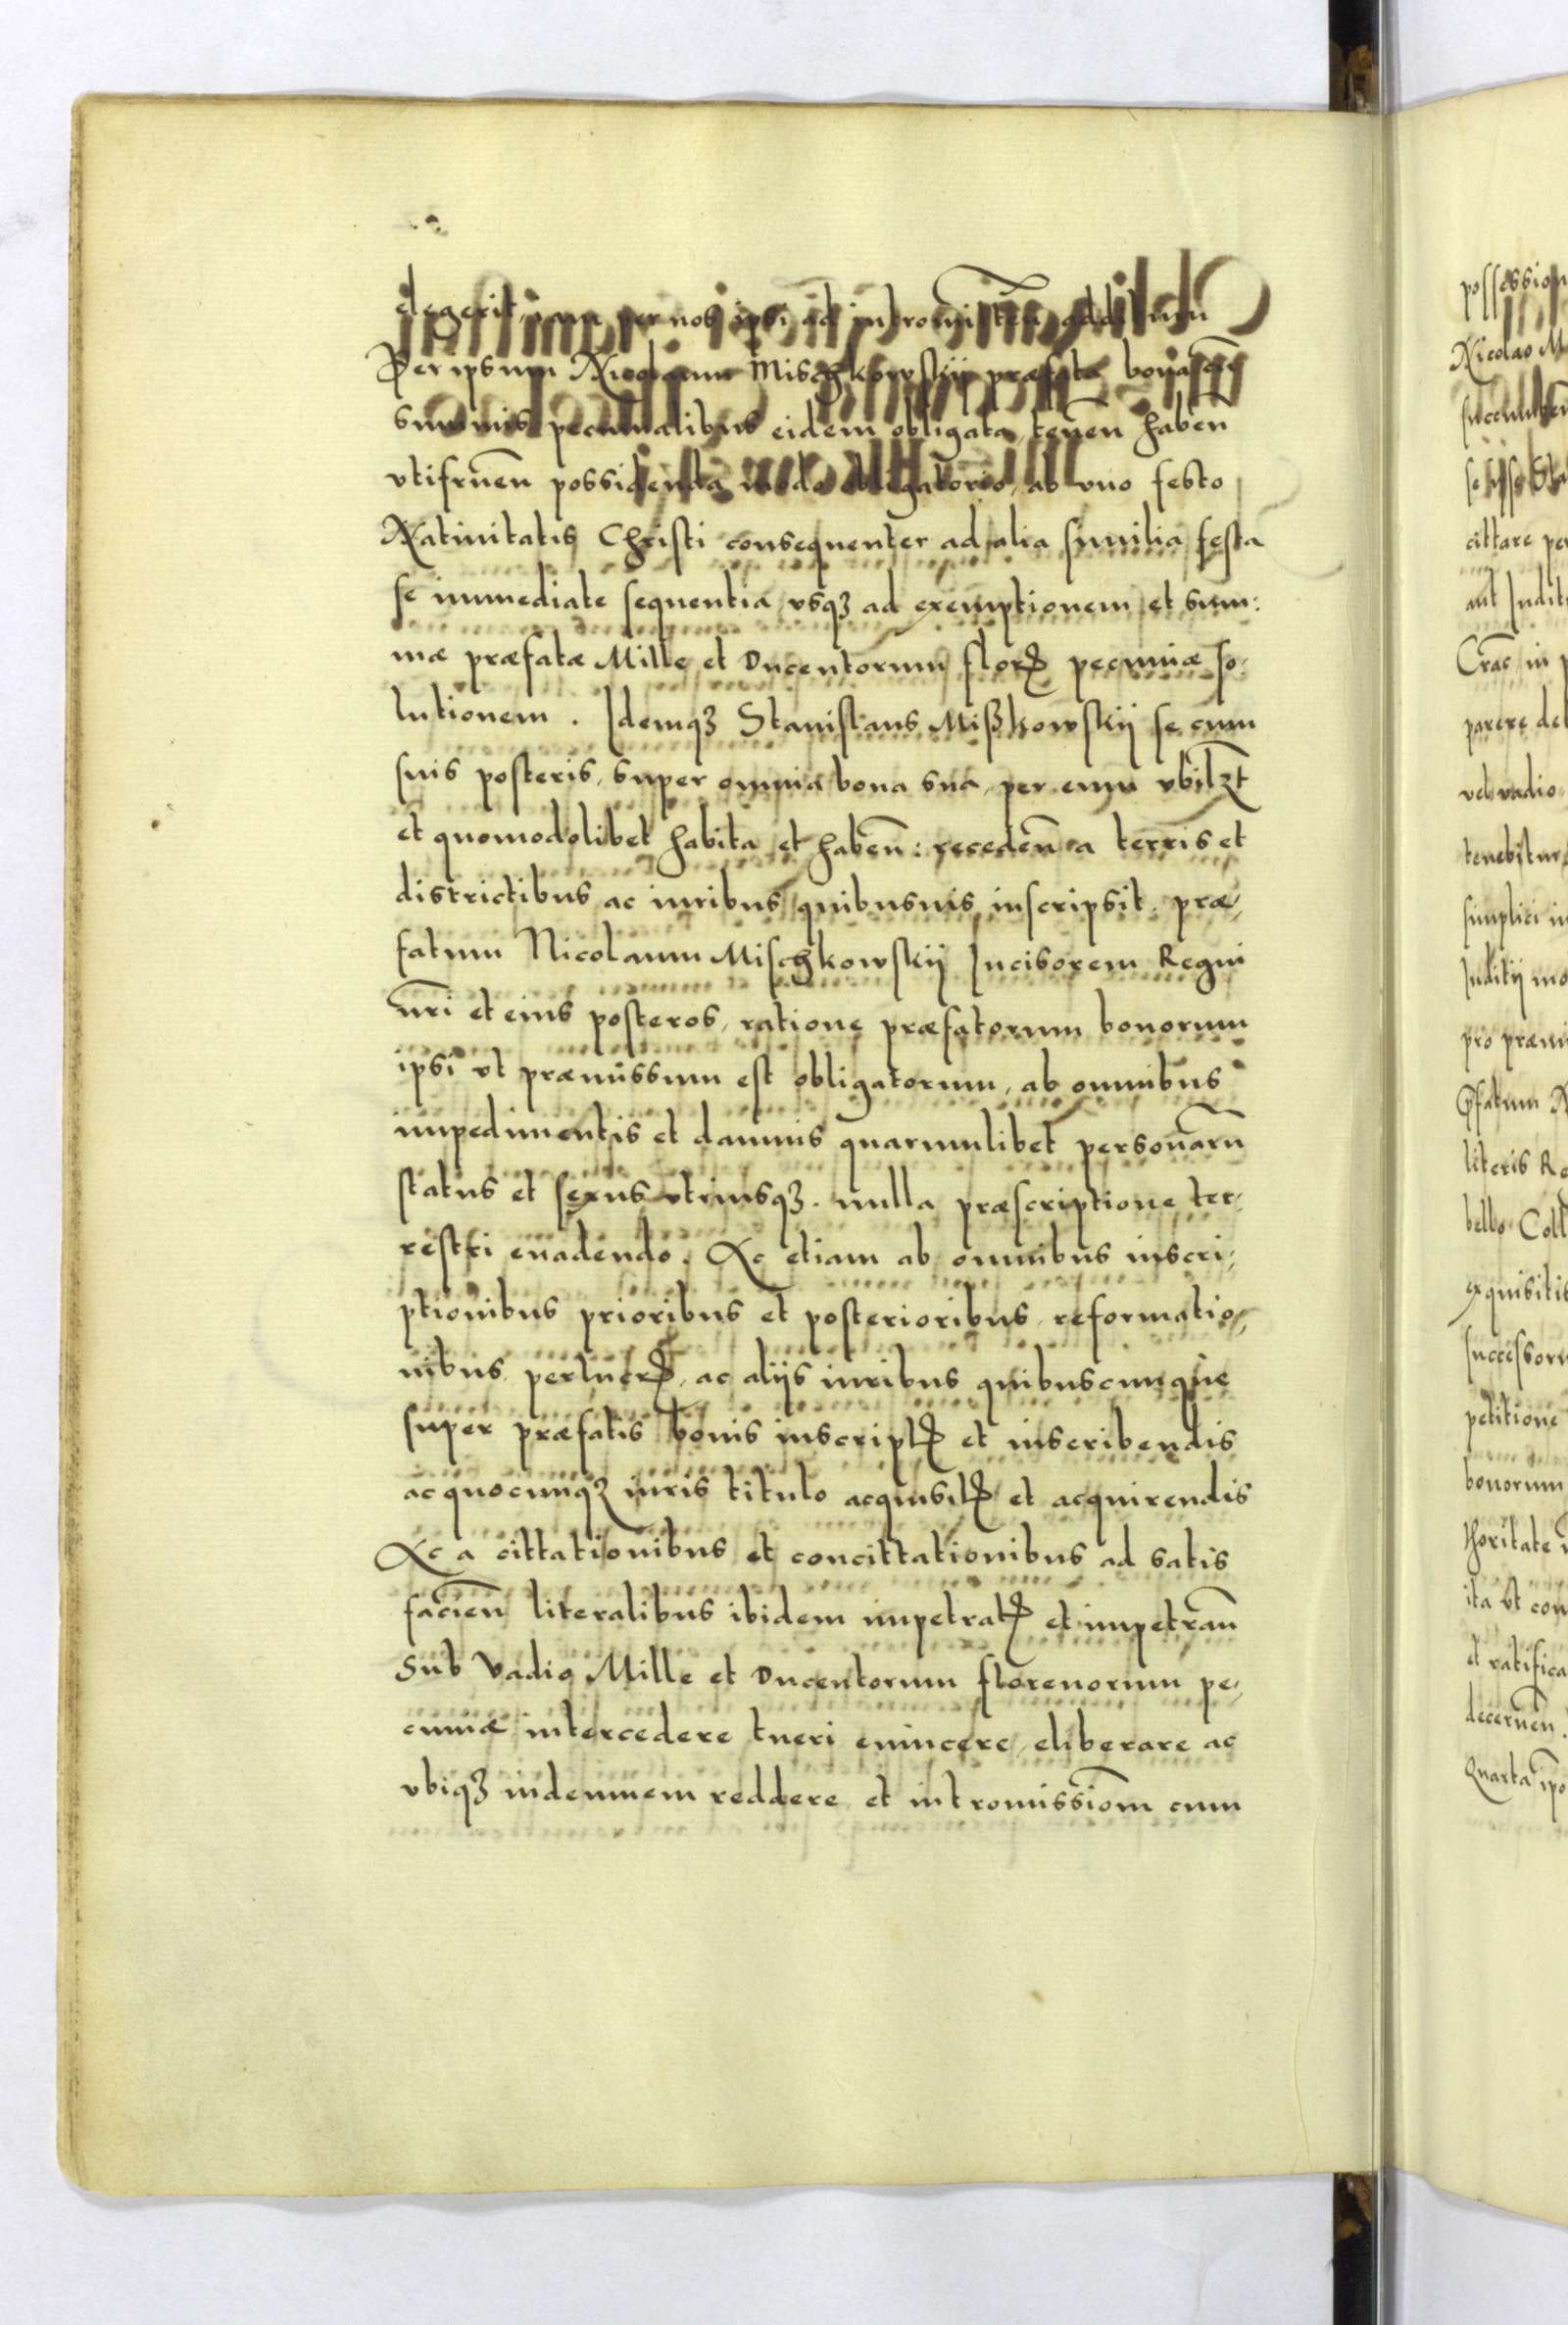 elegerit, per nos ipsi ad intromittendum
Per ipsum Nicolaum Mischkowskij præfata bona
summis pecunialibus eidem obligata, tenen̄ haben̄
vtifruen̄ possidenda modo obligatorio, ab vno festo
Natiuitatis Christi consequenter ad alia similia festa
se immediate sequentia, vsqꝫ ad exemptionem et sum:
mæ præfatæ Mille et Ducentorum florꝝ pecuniæ so,
lutionem. Idemqꝫ Stanislaus Mißkowskij se cum
suis posteris, super omnia bona sua, per eum vbilꝫt
et quomodolibet habita et haben̄: receden̄ a terris et
districtibus ac iuribus quibusuis inscripsit. præ,
fatum Nicolaum Mischkowskij Incisorem Regni
nr̄i et eius posteros, ratione præfatorum bonorum
ipsi vt præmissum est obligatorum, ab omnibus
impedimentis et damnis quarumlibet personarū
status et sexus vtriusqꝫ. nulla præscriptione ter,
restri euadendo. Ac etiam ab omnibus inscri,
ptionibus prioribus et posterioribus, reformatio,
nibus perlucrꝭ, ac alijs iuribus quibuscunque
super præfatis bonis inscriptꝭ et inscribendis
ac quocunqꝫ iuris titulo acquisitꝭ et acquirendis
Ac a cittationibus et concittationibus ad satis
facien̄ literalibus ibidem impetratꝭ et impetran̄
Sub Vadio Mille et Ducentorum florenorum pe,
cuniæ intercedere tueri euincere, eliberare ac
vbiqꝫ indemnem reddere et intromissiom̄ cum
possession
Nicolao M
cittare pe
aut Judit
Crac̄ in p
parere de
vel vadio
tenebitur
simplici in
Juditij mo
pro præmi
literis Re
bello Coll
exquisitis
successor
petitione
bonorum
thoritate
ita vt con
et ratifica
decernen̄.
Quarta ipo